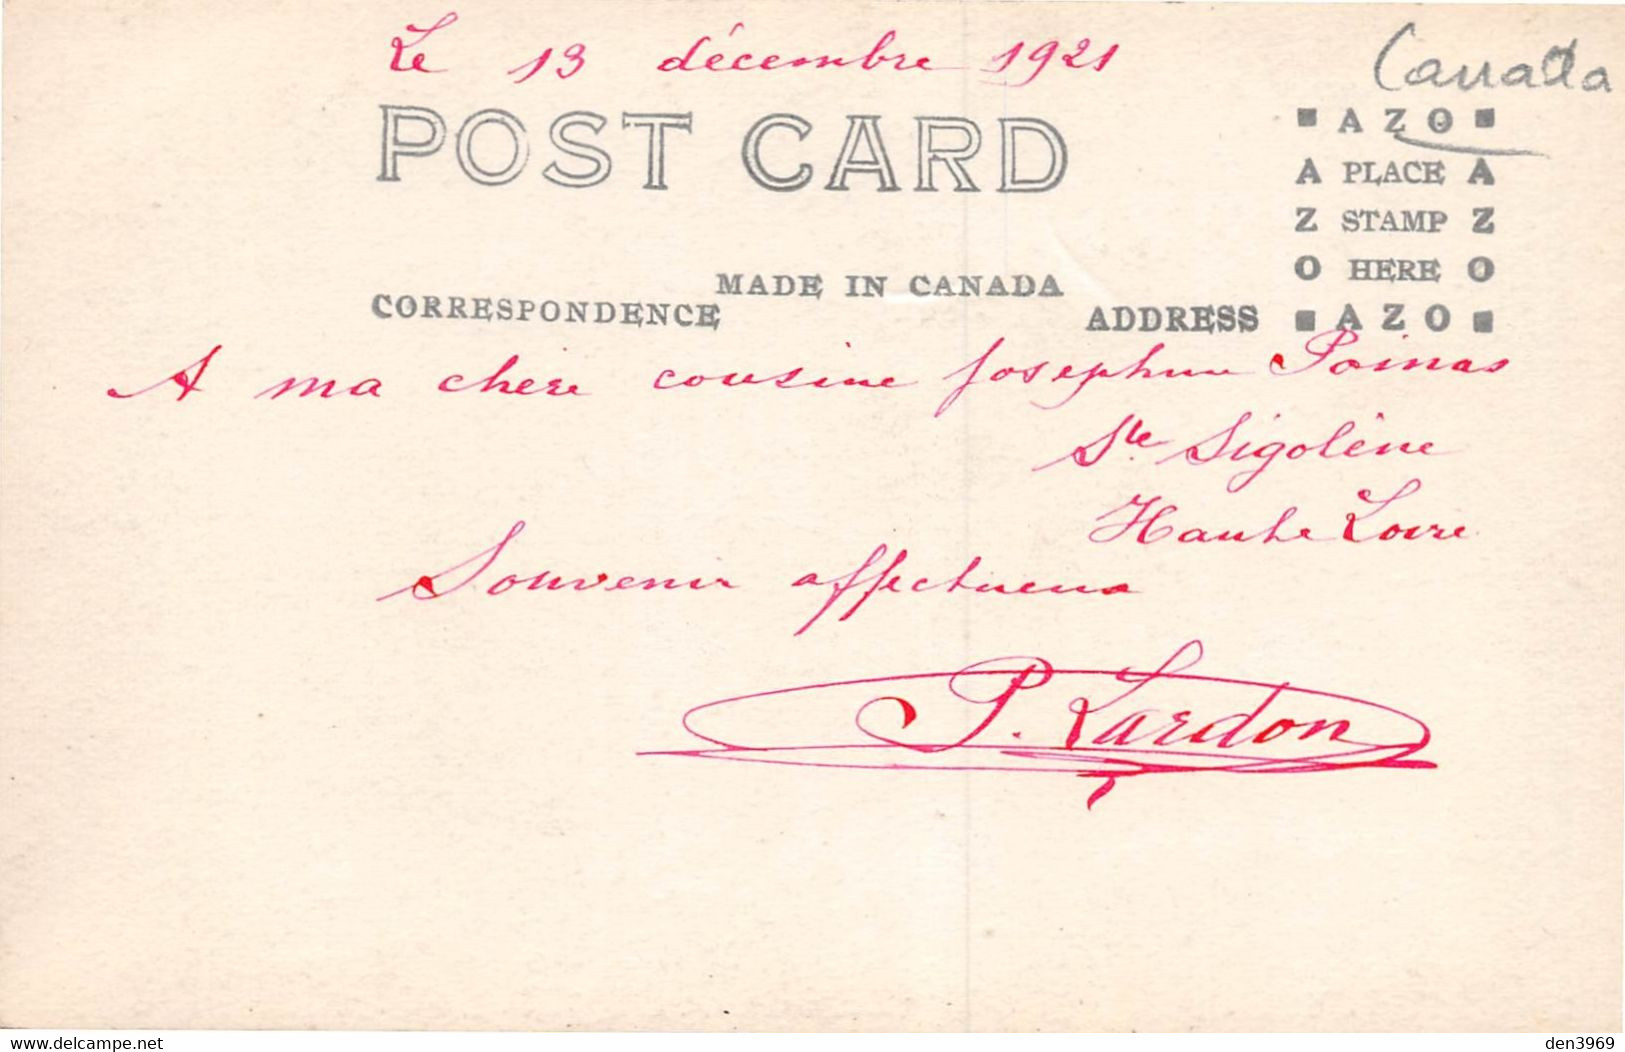 Le 13 décembre 1921
Canada
POST CARD
■ A Z O ■
A PLACE A
Z STAMP Z
O HERE O
■ A Z O ■
MADE IN CANADA
CORRESPONDENCE
ADDRESS
A ma chere cousine Josephine Poinas
Ste Sigolène
Haute Loire
Souvenir affectueux
P. Lardon
www.delcampe.net
den3969